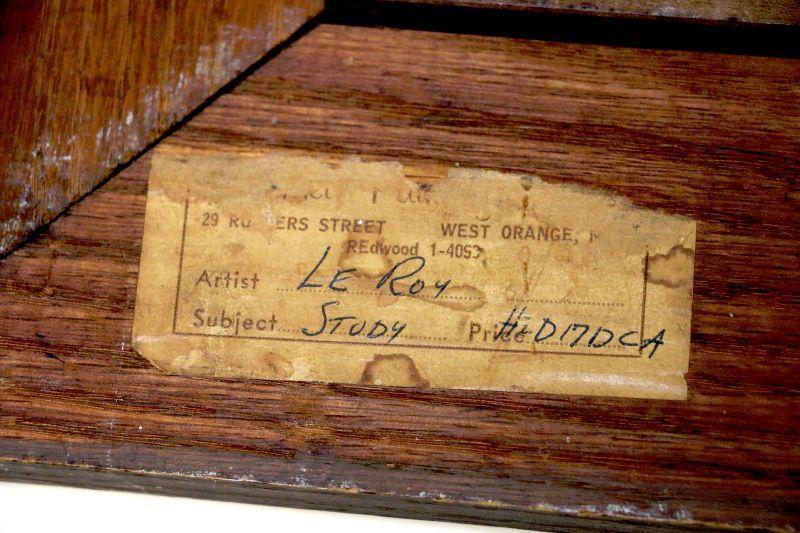 29 ERS STREET WEST ORANGE,
REdwood 1-4093
Artist LE ROY
Subject STUDY Price